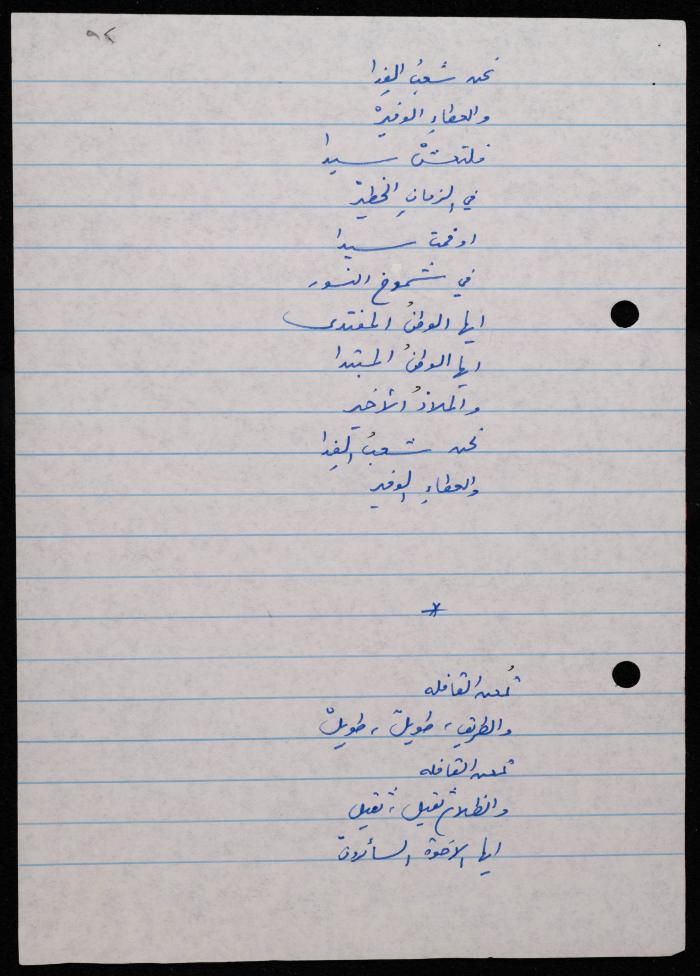 ٩٤
نحن شعبُ الفِدا
والعطاءِ الوفيرْ
فلتعشْ سيدا
في الزمانِ الخطيرْ
او فمت سيدا
في شموخ النسور
ايها الوطنُ المفتدى
ايها الوطنُ المبتدا
والملاذُ الأخير
نحن شعبُ الفِدا
والعطاءِ الوفير
*
تُمعن القافله
والطريق، طويلٌ، طويلْ
تمعن القافله
والظلامُ ثقيل، ثقيل
ايها الاخوة السائرون